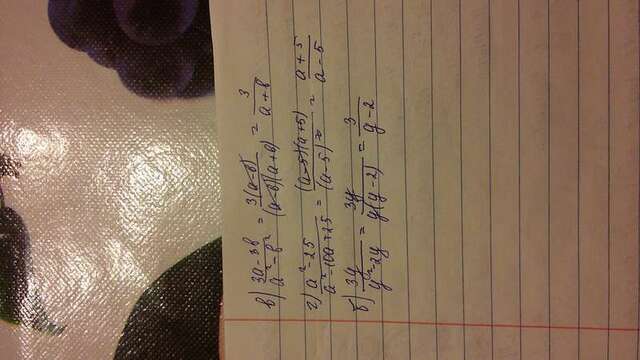 в) (3a-3b)/(a²-b²) = 3(a-b)/((a-b)(a+b)) = 3/(a+b)
г) (a²-25)/(a²-10a+25) = (a-5)(a+5)/(a-5)² = (a+5)/(a-5)
б) 3y/(y²-2y) = 3y/(y(y-2)) = 3/(y-2)